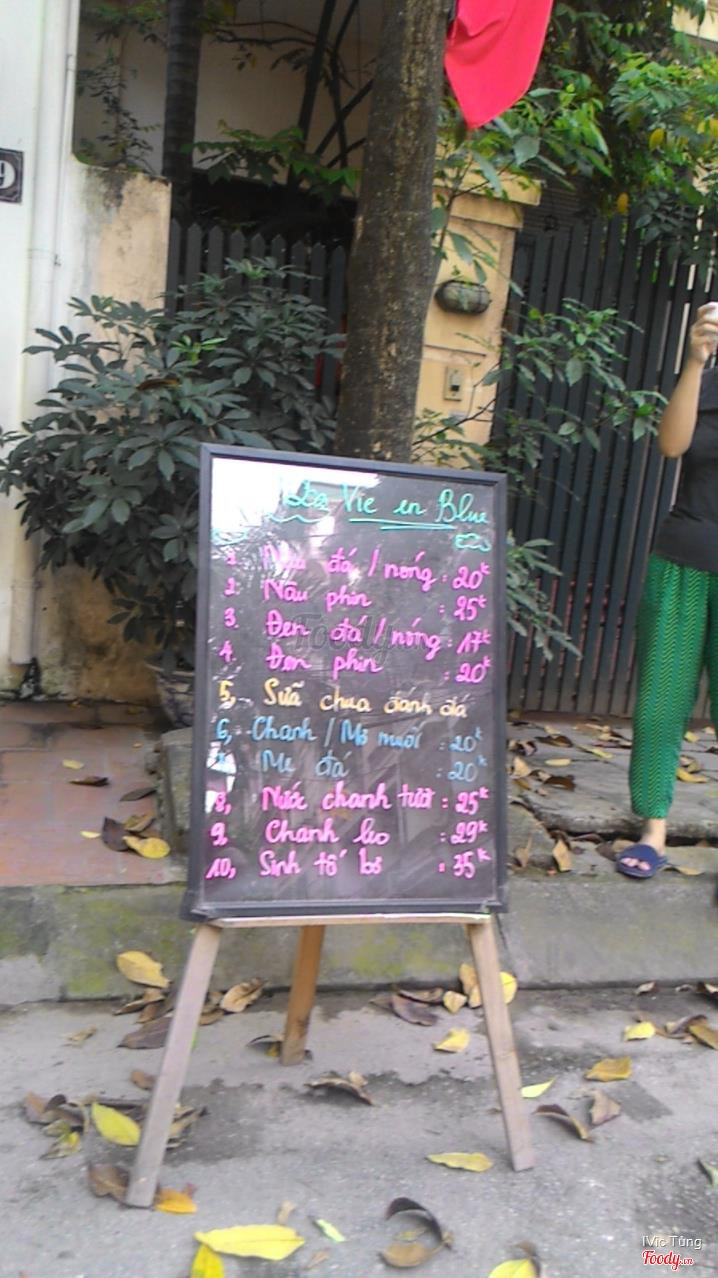 9
La Vie en Blue
1. Nâu đá / nóng : 20k
2. Nâu phin : 25k
3. Đen đá / nóng : 17k
4. Đen phin : 20k
5, Sữa chua đánh đá
6, Chanh / Mơ muối : 20k
Me đá : 20k
8, Nước chanh tươi : 25k
9, Chanh leo : 29k
10, Sinh tố bơ : 35k
Foody
IVic Tùng
Foody.vn